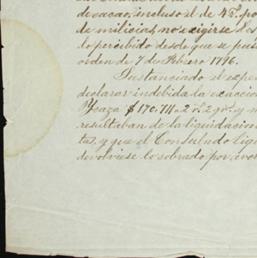 de cacao, incluso el de 4 p%, po
de milicias, no exigirse des
lo percibido desde que se pus
orden de 7 de Febrero 1796.
Sustanciado el expe
declarar indebida la exaccion
Ycaza $170.711-2 rs 2 gs. y
resultaban de la liquidacion
tas, y que el Consulado liqu
devolviese lo sobrado por aver